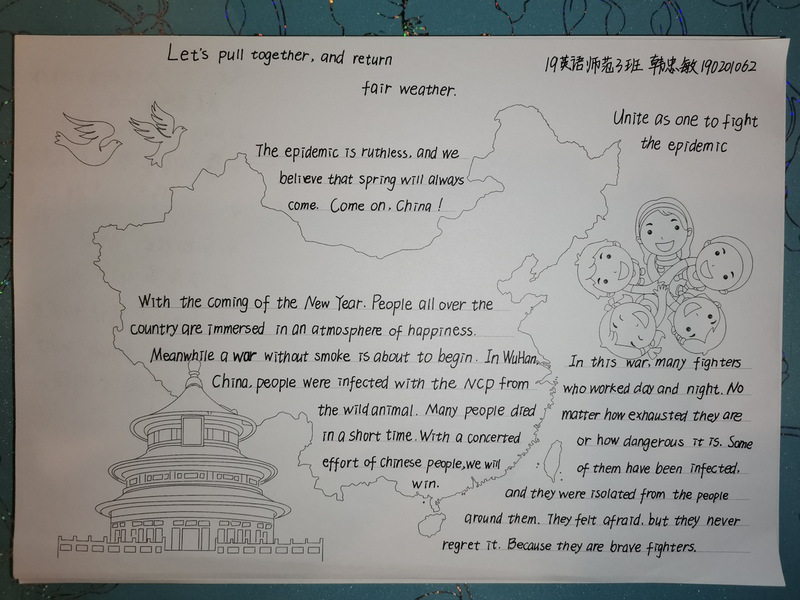 Let's pull together, and return
fair weather.
19英语师范3班 韩忠敏 190201062
Unite as one to fight
the epidemic
The epidemic is ruthless, and we
believe that spring will always
come. Come on, China!
With the coming of the New Year. People all over the
country are immersed in an atmosphere of happiness.
Meanwhile a war without smoke is about to begin. In WuHan,
China, people were infected with the NCP from
the wild animal. Many people died
in a short time. With a concerted
effort of chinese people, we will
win.
In this war, many fighters
who worked day and night. No
matter how exhausted they are
or how dangerous it is. Some
of them have been infected,
and they were isolated from the people
around them. They felt afraid, but they never
regret it. Because they are brave fighters.